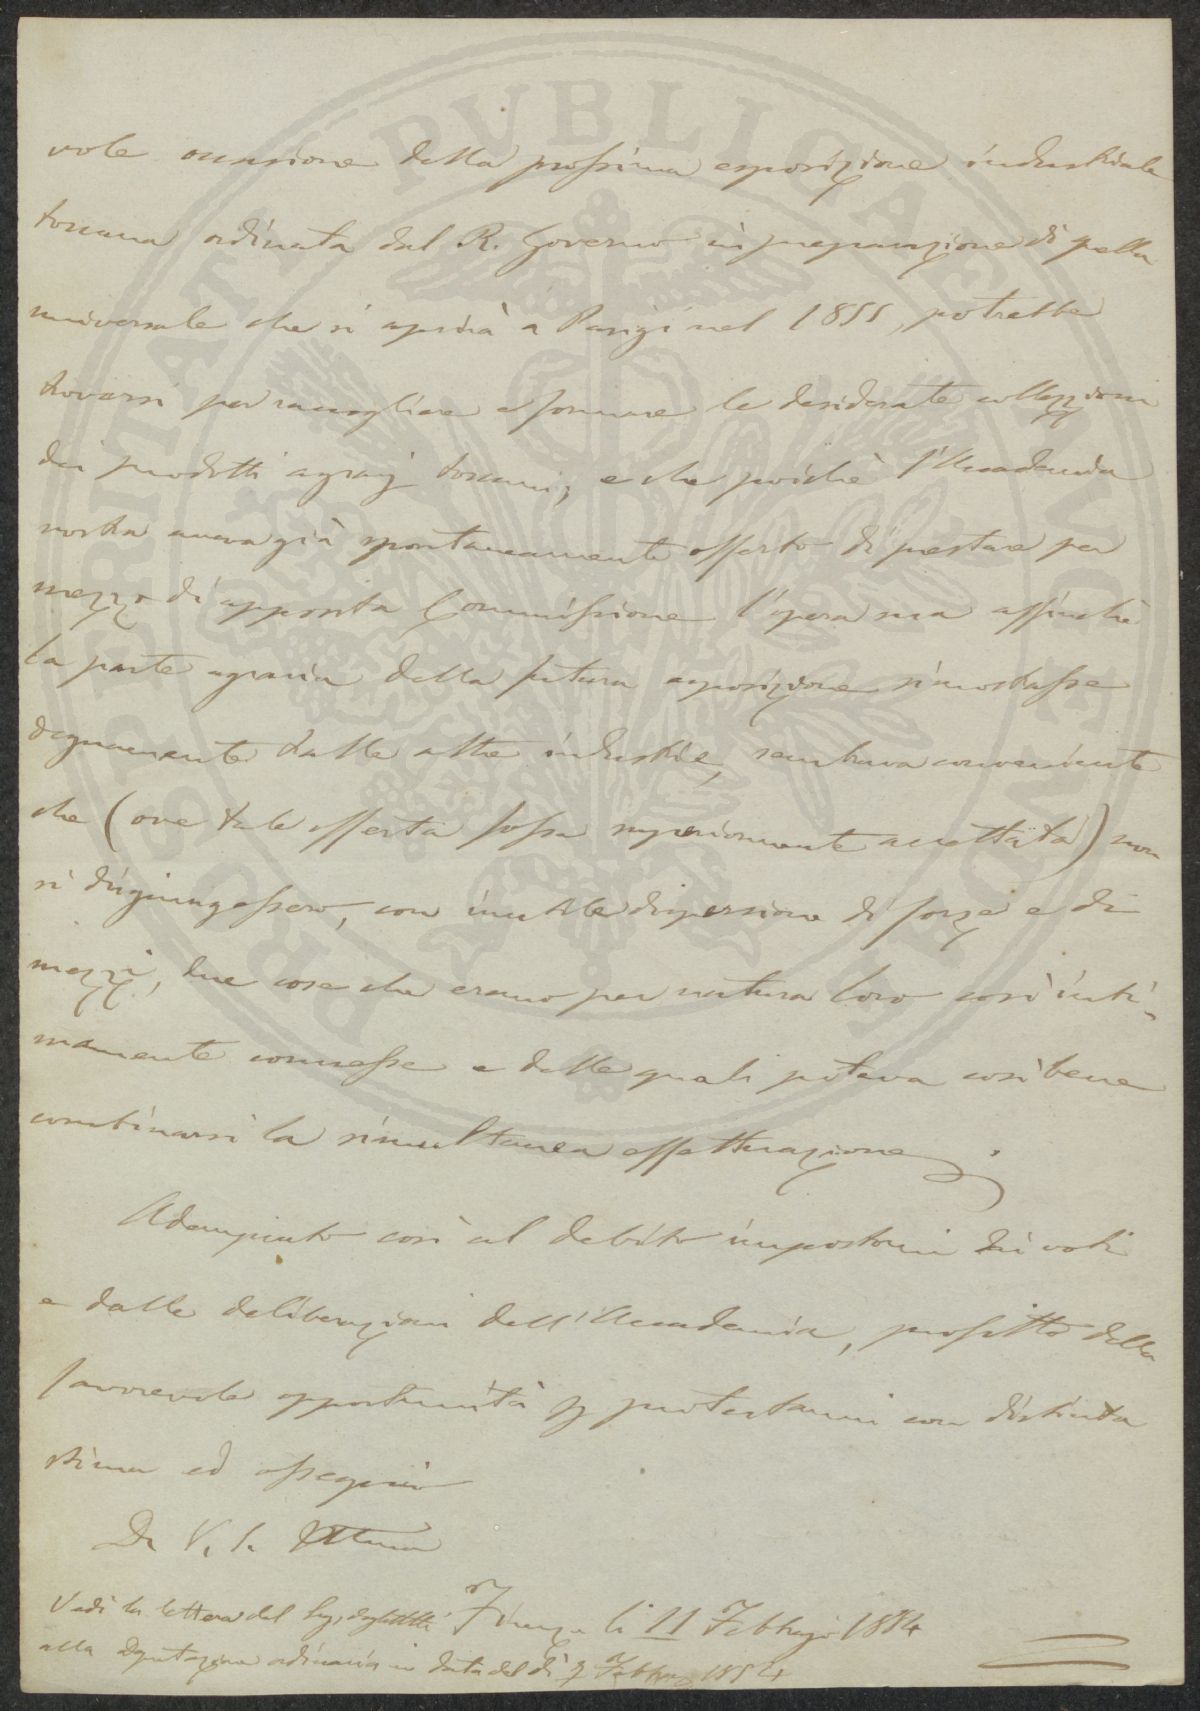 vole occasione della prossima esposizione industriale
toscana ordinata dal R. Governo in preparazione di quella
universale che si aprirà a Parigi nel 1855, potrebbe
trovarsi per raccogliere e formare le desiderate collezioni
dei prodotti agrarj toscani; e che poichè l'Accademia
nostra aveva già spontaneamente offerto di prestare per
mezzo di apposita Commissione l'opera sua affinchè
la parte agraria della futura esposizione si mostrasse
degnamente tralle altre industrie, sembrava conveniente
che (ove tale offerta fosse superiormente accettata) non
si disgiungessero, con inutile dispersione di forze e di
mezzi, due cose che erano per natura loro così inti-
mamente connesse e delle quali poteva così bene
combinarsi la simultanea effettuazione;
Adempiuto così al debito impostomi dai voti
e dalle deliberazioni dell'Accademia, profitto della
favorevole opportunità per protestarmi con distinta
stima ed ossequio
Di V. S. Ill.ma
Firenze li 11 Febbrajo 1854
Vedi la lettera del Seg.
alla Deputazione ordinaria in data del dì 7 Febbrajo 1854
PUBLICAE
PROSPERITATI